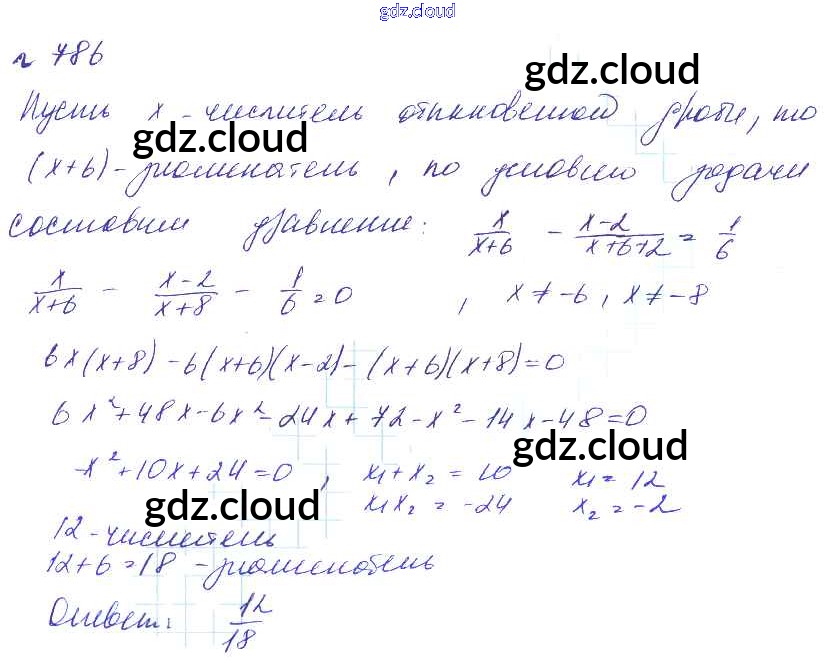 gdz.cloud
№ 786
gdz.cloud
Пусть x - числитель обыкновенной дроби, то
gdz.cloud
(x+6) - знаменатель, по условию задачи
составим уравнение: x/(x+6) - (x-2)/(x+6+2) = 1/6
x/(x+6) - (x-2)/(x+8) - 1/6 = 0 , x ≠ -6, x ≠ -8
6x(x+8) - 6(x+6)(x-2) - (x+6)(x+8) = 0
6x²+48x-6x²-24x+72-x²-14x-48=0
gdz.cloud
-x²+10x+24=0 , x₁+x₂ = 10 x₁ = 12
gdz.cloud x₁x₂ = -24 x₂ = -2
12 - числитель
12+6=18 - знаменатель
Ответ: 12/18